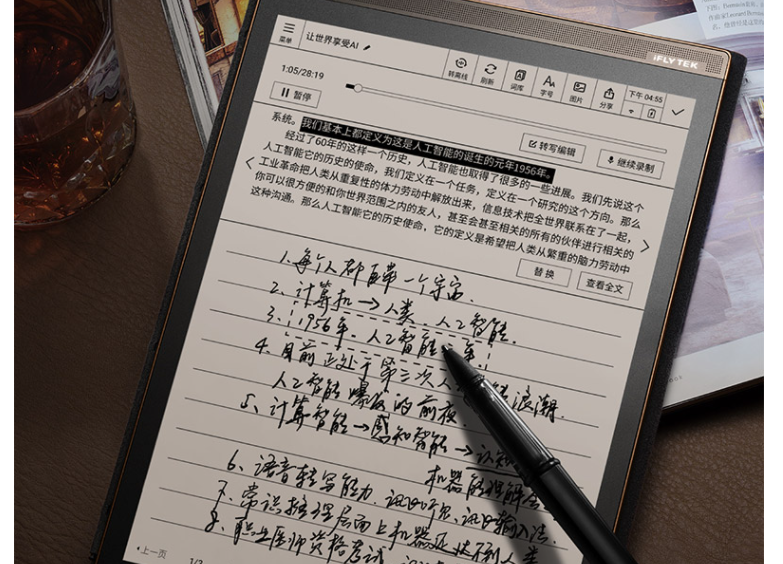 iFLYTEK
菜单 让世界享受AI
转离线 词库 字号 图片 分享 下午 04:55
1:05/28:19
暂停
转写编辑 继续录制
系统。我们基本上都定义为这是人工智能的诞生的元年1956年。
经过了60年的这样一个历史，人工智能也取得了很多的一些进展。我们先说这个
人工智能它的历史的使命，我们定义在一个任务，定义在一个研究的这个方向。那么
工业革命把人类从重复性的体力劳动中解放出来，信息技术把全世界联系在了一起，
你可以很方便的和你世界范围之内的友人，甚至会甚至相关的所有的伙伴进行相关的
这种沟通。那么人工智能它的历史使命，它的定义是希望把人类从繁重的脑力劳动中
替换 查看全文
1、每个人都自带一个宇宙.
2、计算机→人类 人工智能.
3、1956年、人工智能元年
4、目前正处于第三次人 浪潮.
人工智能爆发的前夜.
5、计算智能→感知智能→认知
机器的理解
6、语音转写能力 讯飞听见、讯飞输入法.
7、常识推理层面上机器还达不到人类
8、职业医师资格考试
上一页 1/2